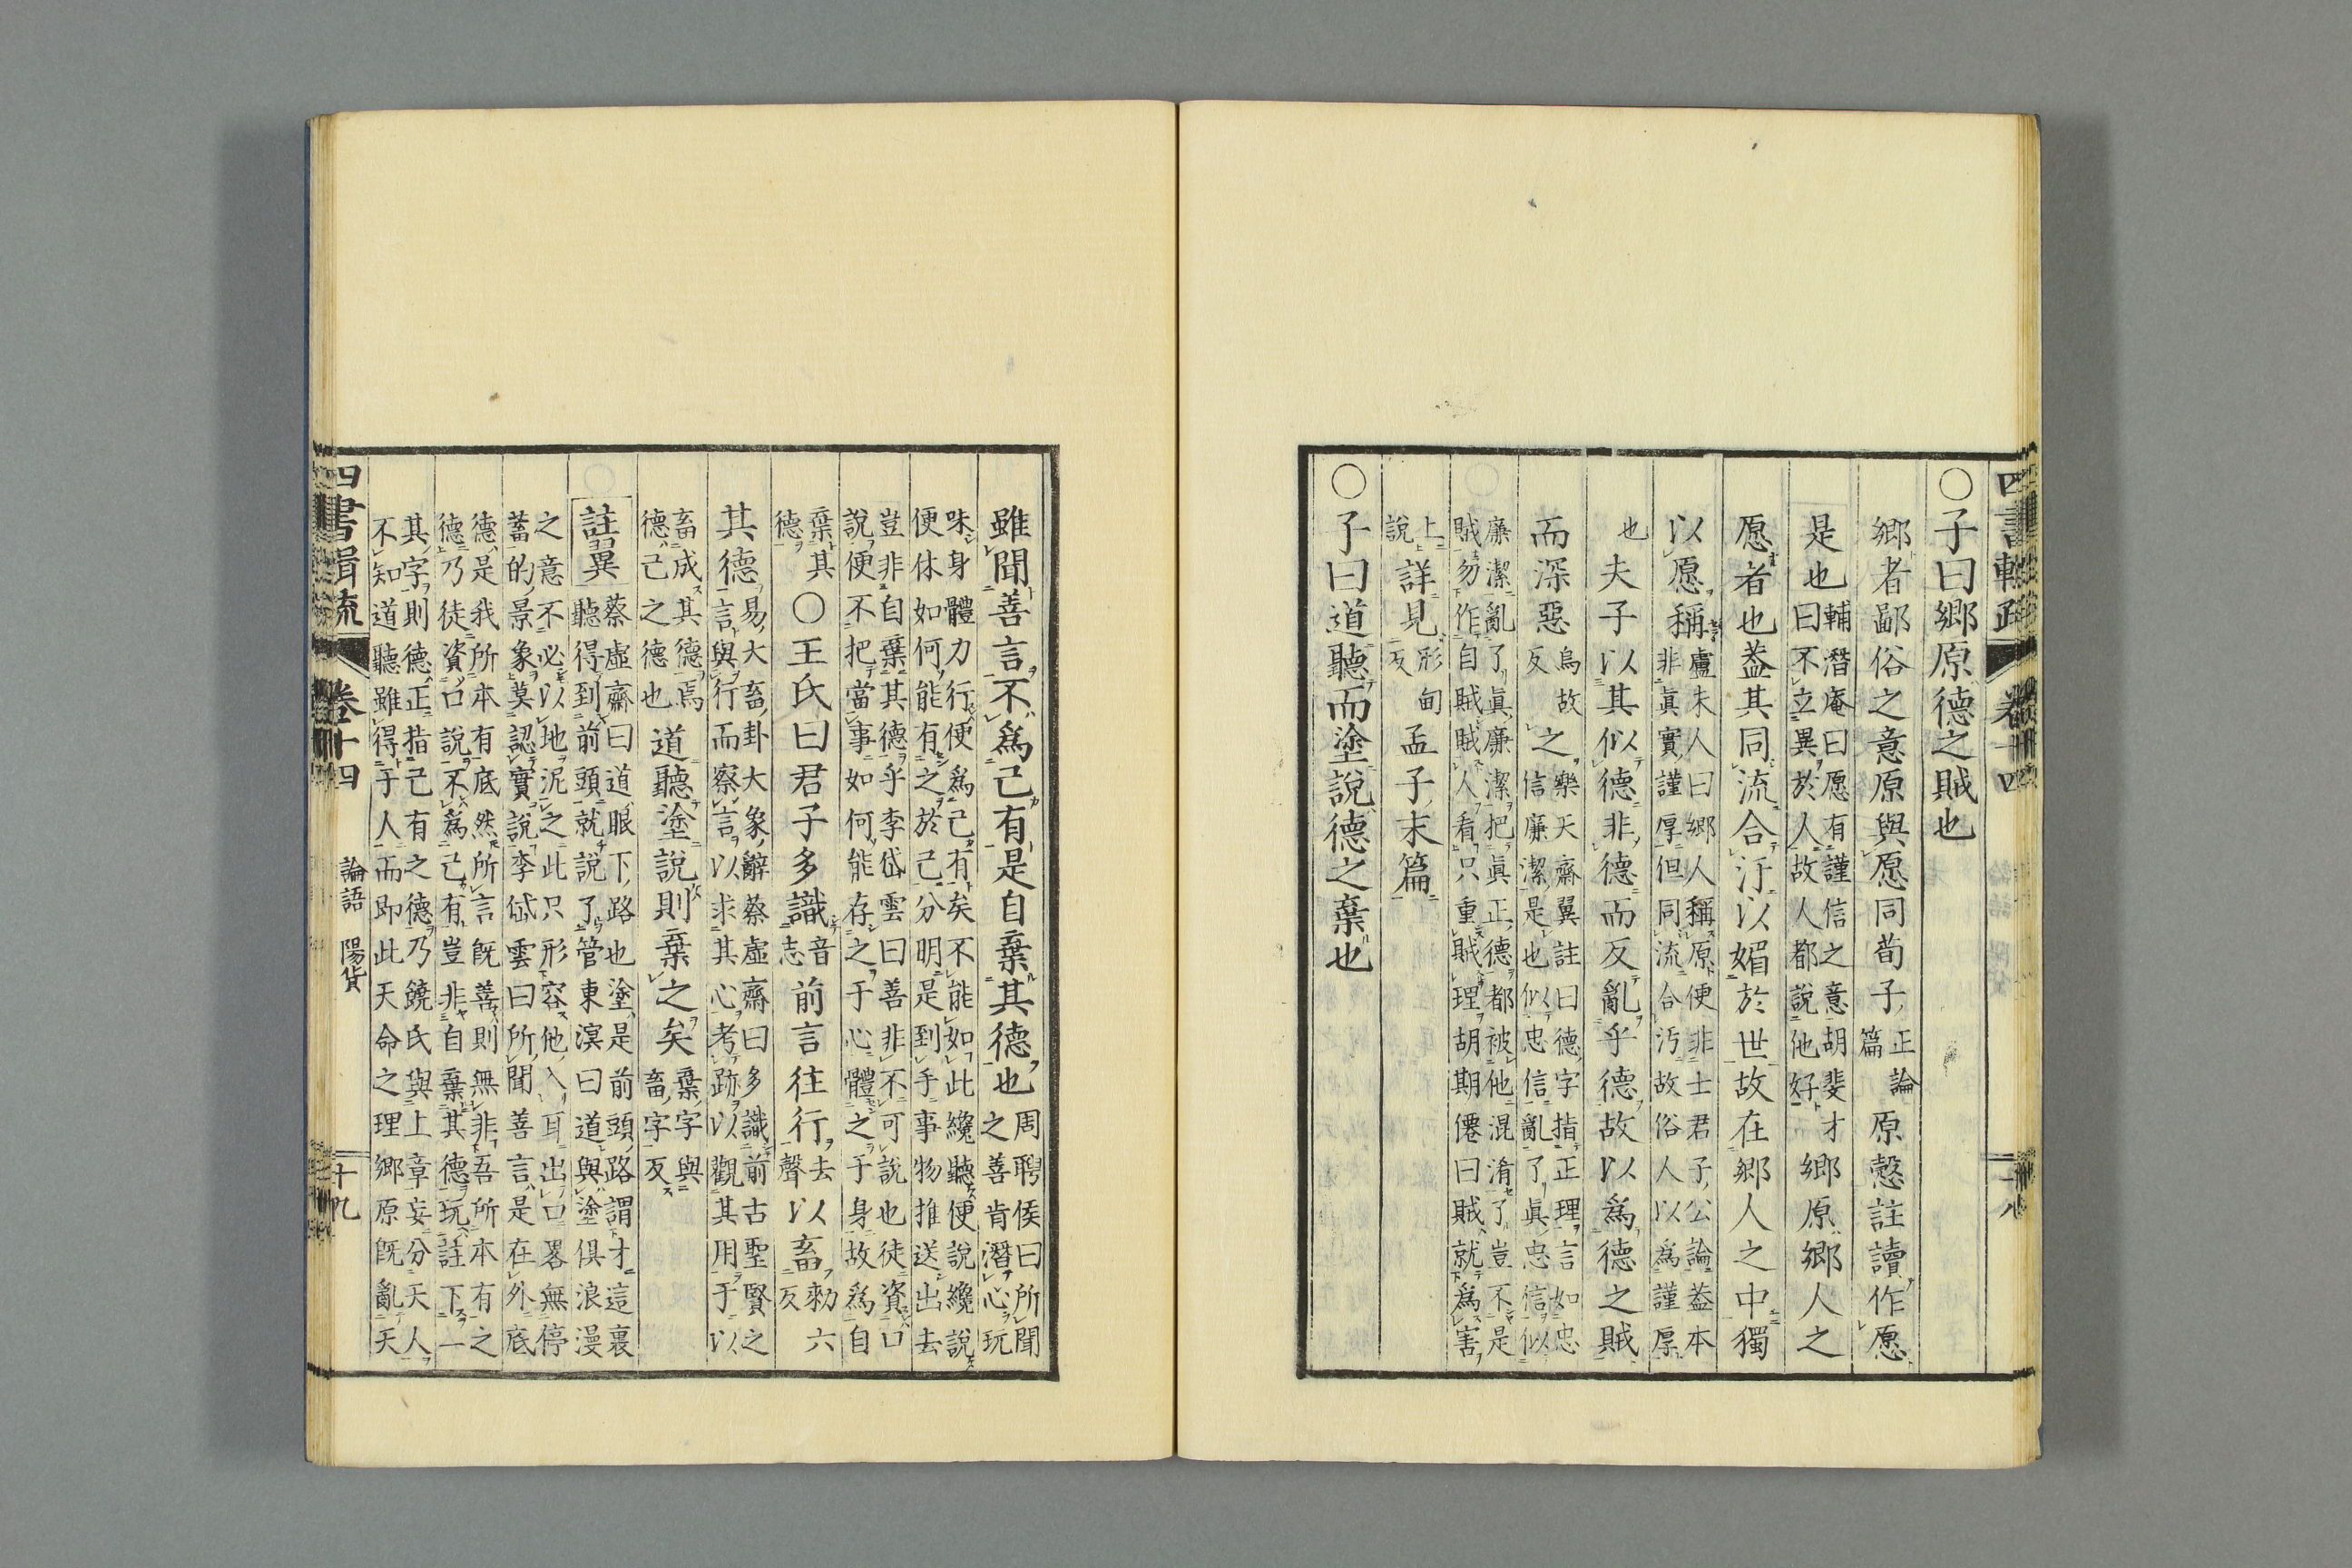 四書輯疏 卷十四
○子曰鄉原德之賊也
鄉者鄙俗之意原與愿同荀子正論篇原愨註讀作愿
是也輔潛庵曰愿有謹信之意胡斐才曰不立異於人故人都說他好鄉原鄉人之
愿者也葢其同流合汙以媚於世故在鄉人之中獨
以愿稱盧未人曰鄉人稱原便非士君子公論葢本非眞實謹厚但同流合汚故俗人以爲謹厚
也夫子以其似德非德而反亂乎德故以爲德之賊
而深惡烏故反之樂天齋翼註曰德字指正理言如忠信廉潔是也似忠信亂了眞忠信似
廉潔亂了眞廉潔把眞正德都被他混淆了豈不是賊勿作自賊賊人看只重賊理胡期僊曰賊就爲害
上說詳見形甸反孟子末篇
○子曰道聽而塗說德之棄也
雖聞善言不爲己有是自棄其德也周聘侯曰所聞之善肯潛心玩
味身體力行便爲己有矣不能如此纔聽便說纔說便休如何能有之於己分明是到手事物推送出去
豈非自棄其德乎李岱雲曰善非不可說也徒資口說便不把當事如何能存之于心體之于身故爲自
棄其德○王氏曰君子多識音志前言往行去聲以畜勑六反
其德易大畜卦大象辭蔡虛齋曰多識前古聖賢之言與行而察言以求其心考跡以觀其用于以
畜成其德焉德己之德也道聽塗說則棄之矣棄字與畜字反
註翼蔡虛齋曰道眼下路也塗是前頭路謂才這裏聽得到前頭就說了管東溟曰道與塗俱浪漫
之意不必以地泥之此只形容他入耳出口畧無停蓄的景象莫認實說李岱雲曰所聞善言是在外底
德是我所本有底然所言旣善則無非吾所本有之德乃徒資口說不爲己有豈非自棄其德玩註下一
其字則德正指己有之德乃饒氏與上章妄分天人不知道聽雖得于人而即此天命之理鄉原旣亂天
四書輯疏 卷十四 論語 陽貨 十九